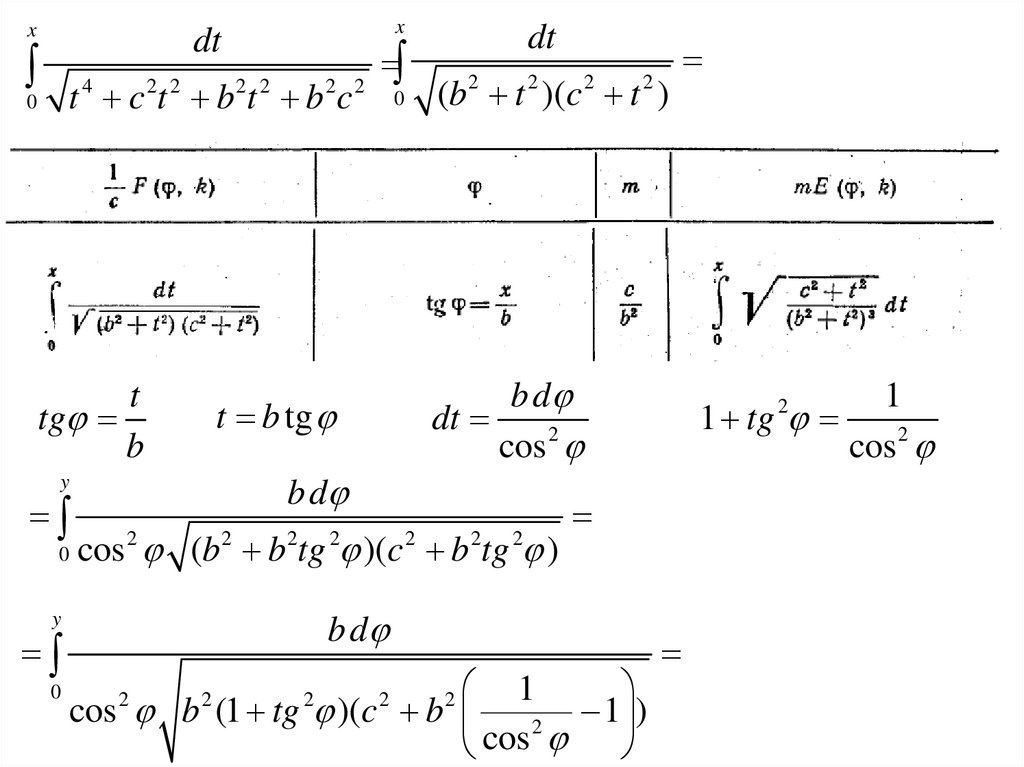 ∫₀ˣ dt / √(t⁴ + c²t² + b²t² + b²c²) = ∫₀ˣ dt / √((b² + t²)(c² + t²)) =
1/c F (φ, k) | φ | m | mE (φ, k)
∫₀ˣ dt / √((b² + t²) (c² + t²)) | tg φ = x/b | c/b² | ∫₀ˣ √((c² + t²) / (b² + t²)³) dt
tgφ = t/b   t = b tg φ   dt = b dφ / cos² φ   1 + tg² φ = 1 / cos² φ
= ∫₀ʸ b dφ / (cos² φ √((b² + b²tg² φ)(c² + b²tg² φ))) =
= ∫₀ʸ b dφ / (cos² φ √(b²(1 + tg² φ)(c² + b² (1 / cos² φ − 1)))) =